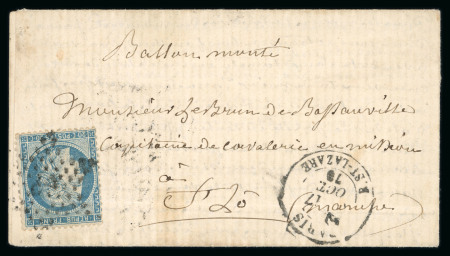 Ballon monté
Monsieur LeBrun de Bassauville
Capitaine de cavalerie en mission
à
St Lô
Manche
PARIS
R. ST-LAZARE
17
OCT.
70